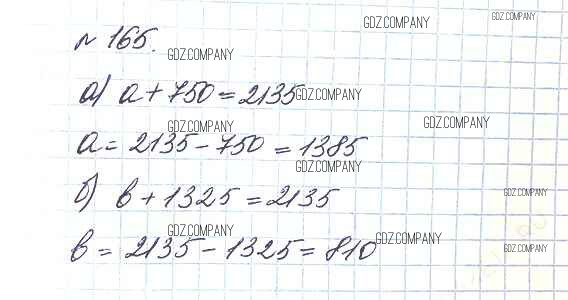 № 165.
GDZ.COMPANY
GDZ.COMPANY
GDZ.COMPANY
а) a + 750 = 2135
GDZ.COMPANY
GDZ.COMPANY
GDZ.COMPANY
a = 2135 - 750 = 1385
GDZ.COMPANY
б) в + 1325 = 2135
GDZ.COMPANY
GDZ.COMPANY
GDZ.COMPANY
в = 2135 - 1325 = 810
GDZ.COMPANY